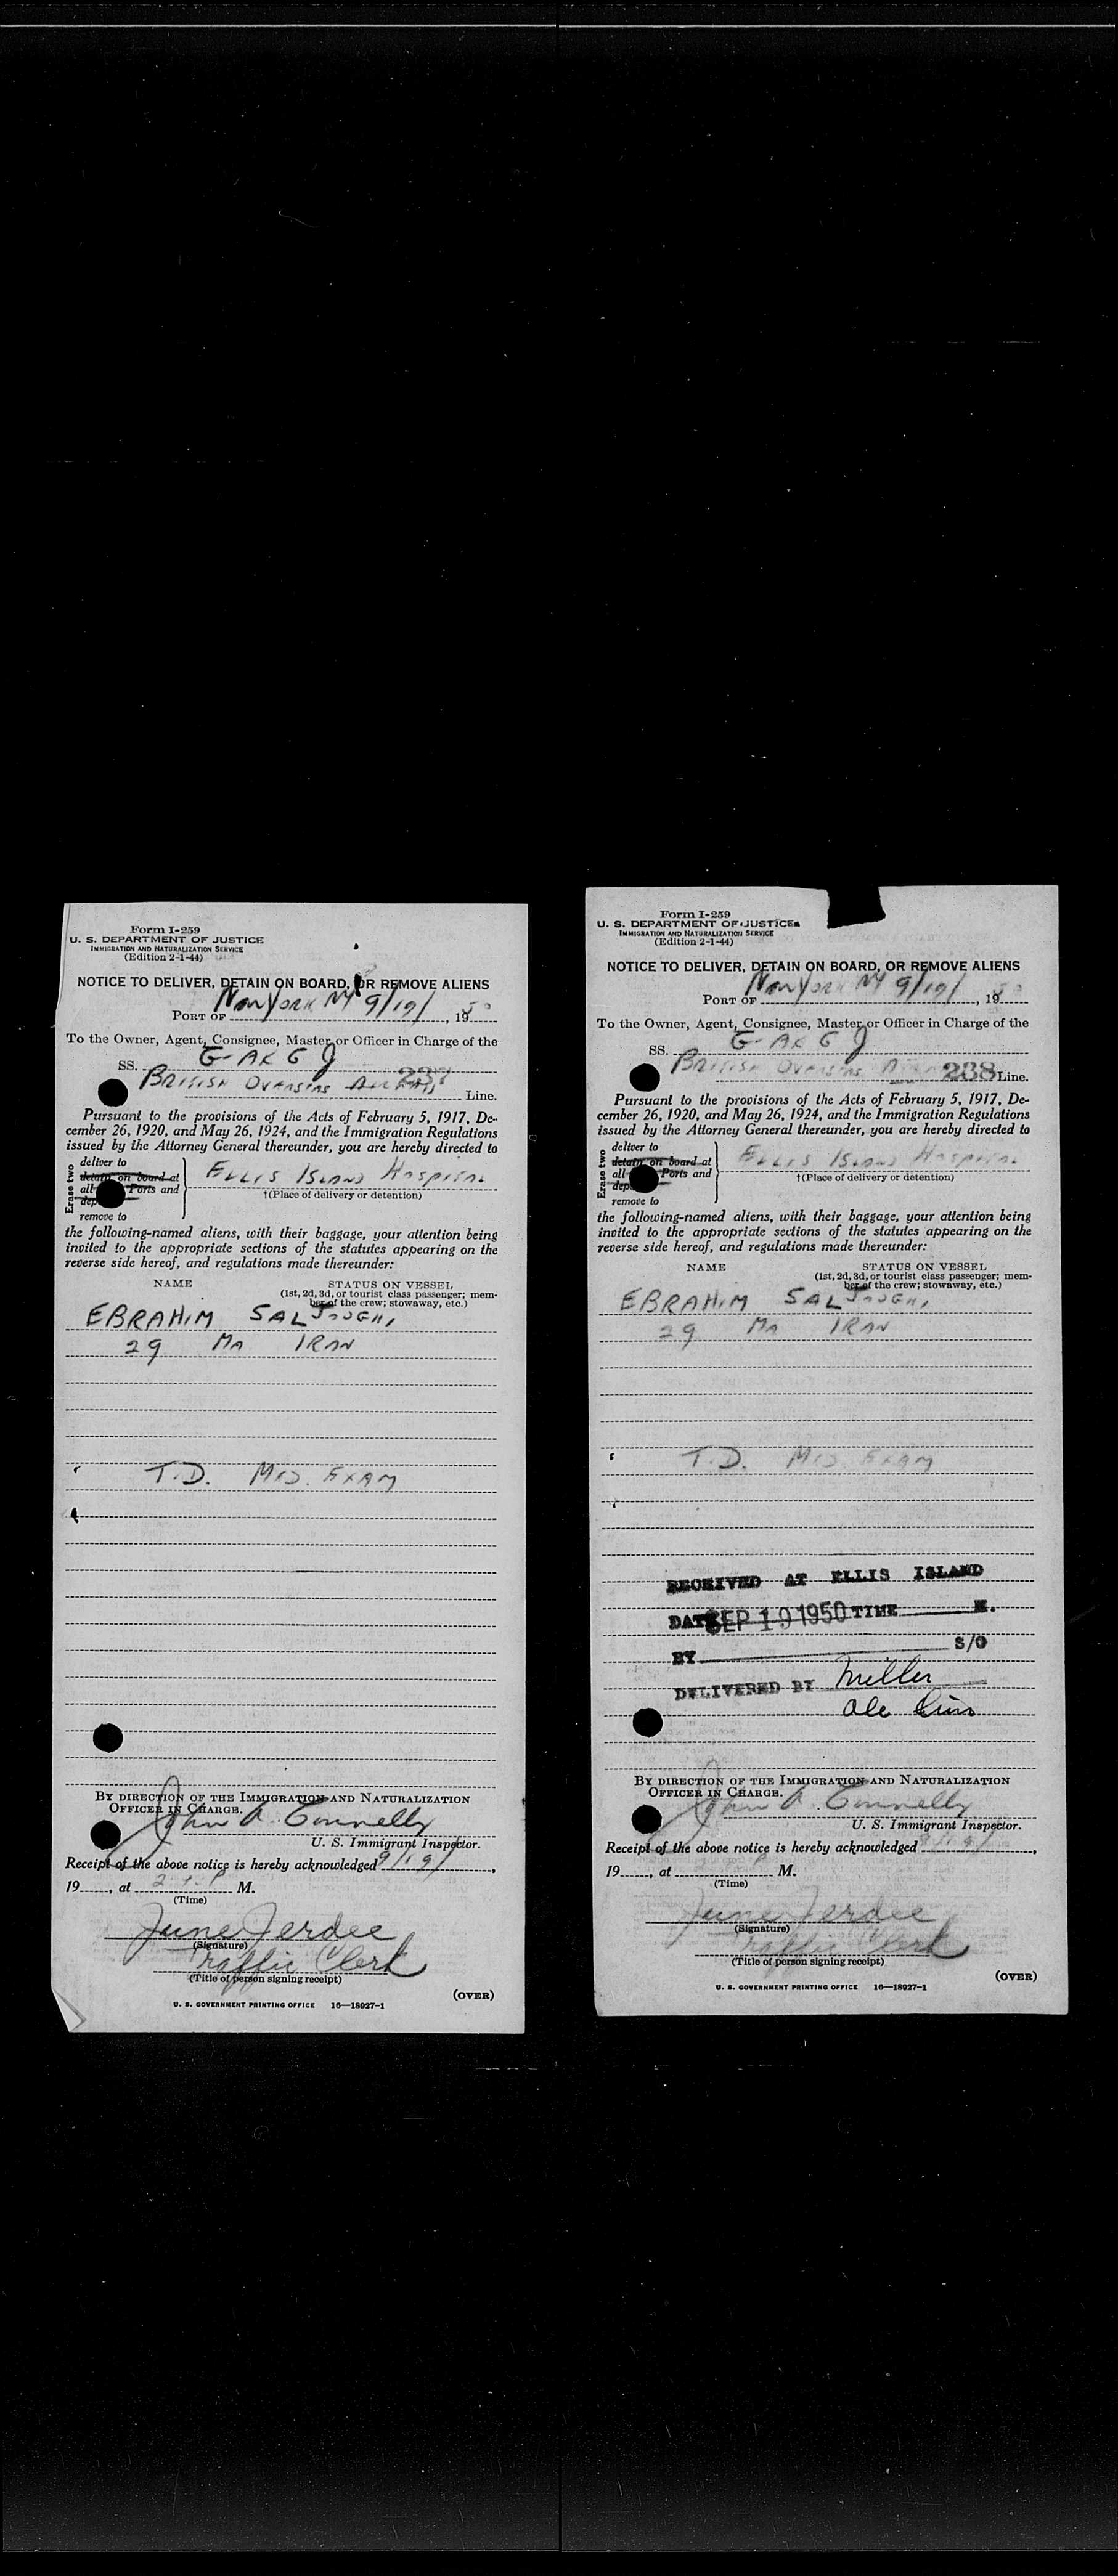 Form I-259
U. S. DEPARTMENT OF JUSTICE
IMMIGRATION AND NATURALIZATION SERVICE
(Edition 2-1-44)
NOTICE TO DELIVER, DETAIN ON BOARD, OR REMOVE ALIENS
PORT OF New York NY 9/19/, 1950
To the Owner, Agent, Consignee, Master or Officer in Charge of the
SS. G-AKGJ
237
BRITISH OVERSEAS AIRWAYS Line.
Pursuant to the provisions of the Acts of February 5, 1917, De-
cember 26, 1920, and May 26, 1924, and the Immigration Regulations
issued by the Attorney General thereunder, you are hereby directed to
Erase two
deliver to
detain on board at
all Ports and
dep
remove to
ELLIS ISLAND HOSPITAL
†(Place of delivery or detention)
the following-named aliens, with their baggage, your attention being
invited to the appropriate sections of the statutes appearing on the
reverse side hereof, and regulations made thereunder:
NAME STATUS ON VESSEL
(1st, 2d, 3d, or tourist class passenger; mem-
ber of the crew; stowaway, etc.)
EBRAHIM SALJOUGHI
29 MA IRAN
T.D. MED. EXAM
BY DIRECTION OF THE IMMIGRATION AND NATURALIZATION
OFFICER IN CHARGE.
John A. Connelly
U. S. Immigrant Inspector.
Receipt of the above notice is hereby acknowledged 9/19/,
19, at P M.
(Time)
June Jerdee
(Signature)
Traffic Clerk
(Title of person signing receipt)
(OVER)
U. S. GOVERNMENT PRINTING OFFICE 16—18927-1
Form I-259
U. S. DEPARTMENT OF JUSTICE
IMMIGRATION AND NATURALIZATION SERVICE
(Edition 2-1-44)
NOTICE TO DELIVER, DETAIN ON BOARD, OR REMOVE ALIENS
PORT OF New York NY 9/19/, 1950
To the Owner, Agent, Consignee, Master or Officer in Charge of the
SS. G-AKGJ
BRITISH OVERSEAS 238 Line.
Pursuant to the provisions of the Acts of February 5, 1917, De-
cember 26, 1920, and May 26, 1924, and the Immigration Regulations
issued by the Attorney General thereunder, you are hereby directed to
Erase two
deliver to
detain on board at
all Ports and
dep
remove to
ELLIS ISLAND HOSPITAL
†(Place of delivery or detention)
the following-named aliens, with their baggage, your attention being
invited to the appropriate sections of the statutes appearing on the
reverse side hereof, and regulations made thereunder:
NAME STATUS ON VESSEL
(1st, 2d, 3d, or tourist class passenger; mem-
ber of the crew; stowaway, etc.)
EBRAHIM SALJOUGHI
29 MA IRAN
T.D. MED. EXAM
RECEIVED AT ELLIS ISLAND
DATE SEP 19 1950 TIME M.
BY S/O
DELIVERED BY Miller
BY DIRECTION OF THE IMMIGRATION AND NATURALIZATION
OFFICER IN CHARGE.
John A. Connelly
U. S. Immigrant Inspector.
Receipt of the above notice is hereby acknowledged 9/19/,
19, at M.
(Time)
June Jerdee
(Signature)
Traffic Clerk
(Title of person signing receipt)
(OVER)
U. S. GOVERNMENT PRINTING OFFICE 16—18927-1